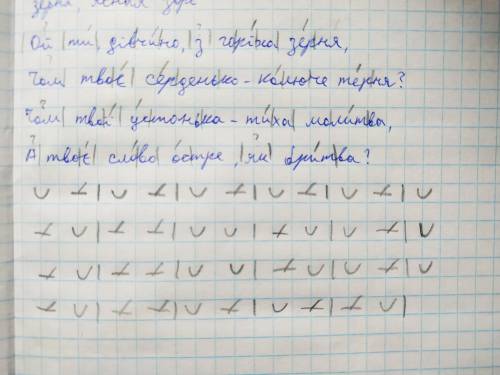 зерня, ясная
Ой ти, дівчино, з горіха зерня,
Чом твоє серденько - колюче терня?
Чом твої устонька - тиха молитва,
А твоє слово остре, як бритва?